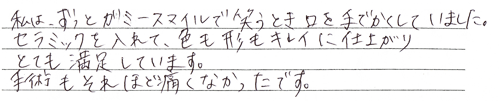 私は、ずっとガミースマイルで笑うとき口を手でかくしていました。
セラミックを入れて、色も形もキレイに仕上がり
とても満足しています。
手術もそれほど痛くなかったです。